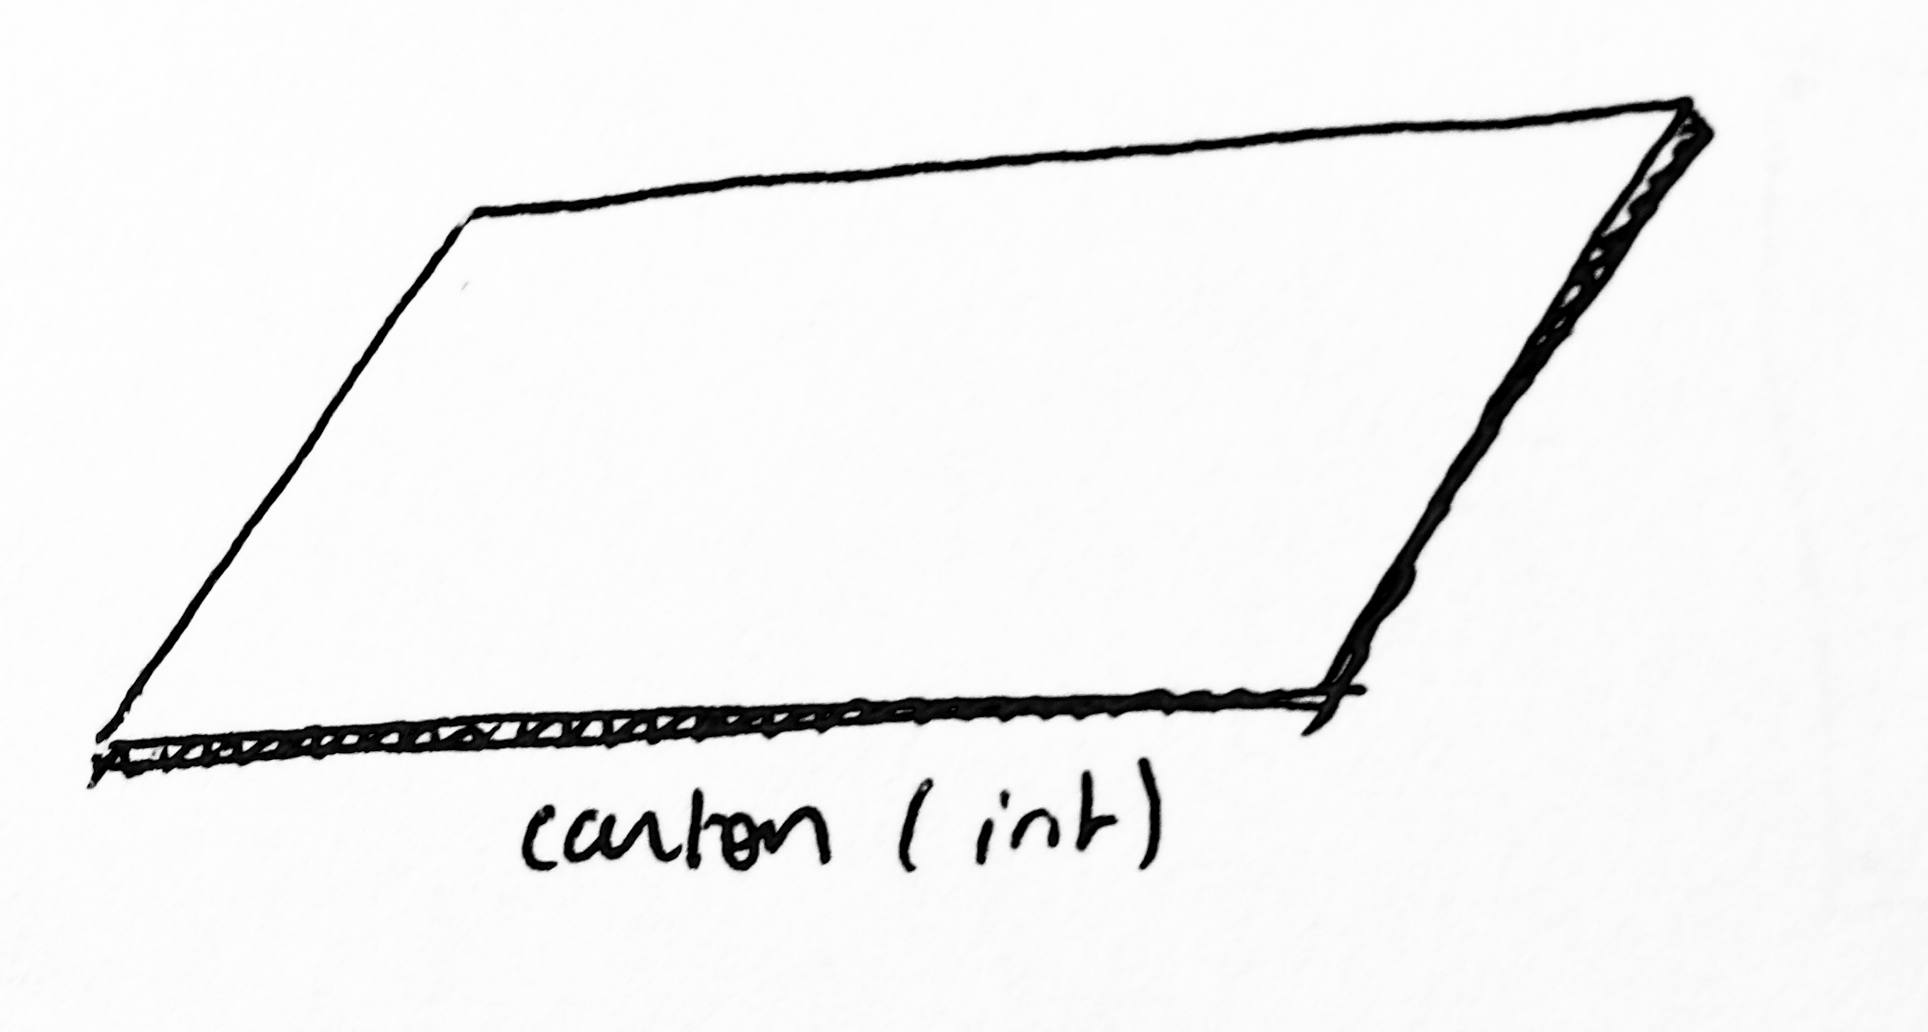 carton (int)